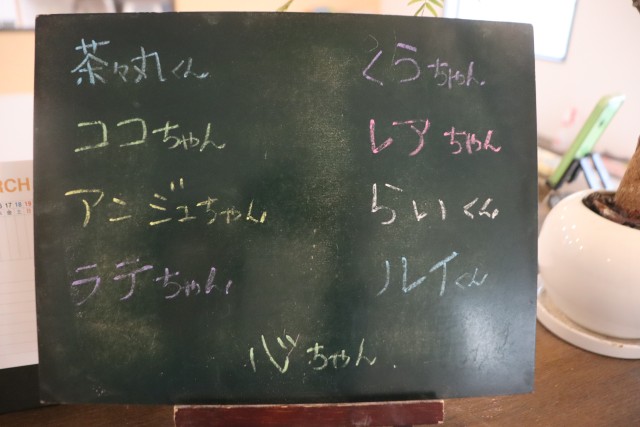 茶々丸くん
ココちゃん
アンジュちゃん
ラテちゃん
くらちゃん
レアちゃん
らいくん
ルイくん
心ちゃん
RCH
17 18 19